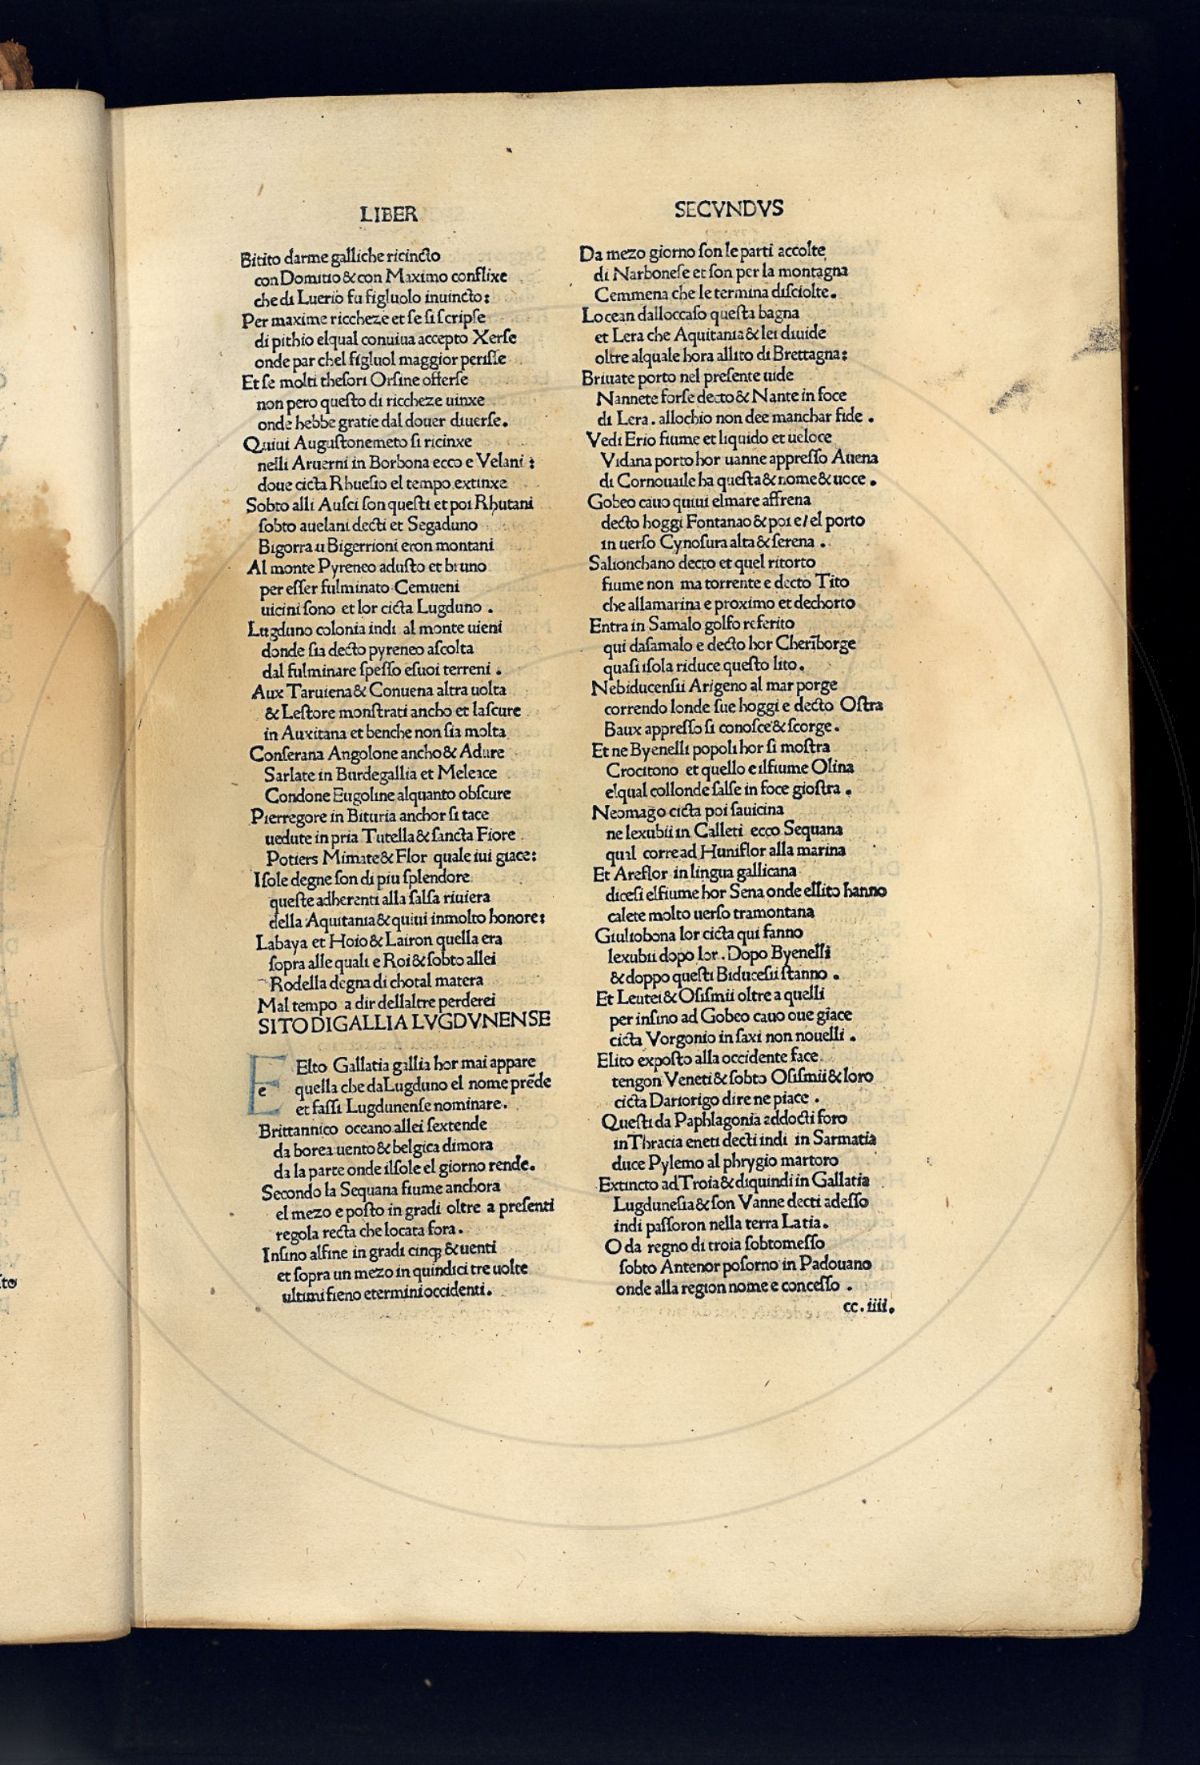 LIBER
SECVNDVS
Bitito darme galliche ricincto
con Domitio & con Maximo conflixe
che di Luerio fu figluolo inuincto:
Per maxime riccheze et se si scripse
di pithio elqual conuiua accepto Xerse
onde par chel figluol maggior perisse
Et se molti thesori Orsine offerse
non pero questo di riccheze uinxe
onde hebbe gratie dal douer diuerse.
Quiui Augustonemeto si ricinxe
nelli Aruerni in Borbona ecco e Velani :
doue cicta Rhuesio el tempo extinxe
Sobto alli Ausci son questi et poi Rhutani
sobto auelani decti et Segaduno
Bigorra u Bigerrioni eron montani
Al monte Pyreneo adusto et bruno
per esser fulminato Cemueni
uicini sono et lor cicta Lugduno .
Lugduno colonia indi al monte uieni
donde sia decto pyreneo ascolta
dal fulminare spesso esuoi terreni .
Aux Taruiena & Conuena altra uolta
& Lestore monstrati ancho et lascure
in Auxitana et benche non sia molta
Conserana Angolone ancho & Adure
Sarlate in Burdegallia et Meleace
Condone Eugoline alquanto obscure
Pierregore in Bituria anchor si tace
uedute in pria Tutella & sancta Fiore
Potiers Mimate & Flor quale iui giace:
Isole degne son di piu splendore
queste adherenti alla salsa riuiera
della Aquitania & quiui inmolto honore:
Labaya et Hoio & Lairon quella era
sopra alle quali e Roi & sobto allei
Rodella degna di chotal matera
Mal tempo a dir dellaltre perderei
SITO DI GALLIA LVGDVNENSE
E e Elto Gallatia gallia hor mai appare
quella che daLugduno el nome prēde
et fassi Lugdunense nominare.
Brittannico oceano allei sextende
da borea uento & belgica dimora
da la parte onde ilsole el giorno rende.
Secondo la Sequana fiume anchora
el mezo e posto in gradi oltre a presenti
regola recta che locata fora.
Insino alfine in gradi cinqȝ & uenti
et sopra un mezo in quindici tre uolte
ultimi fieno etermini occidenti.
Da mezo giorno son le parti accolte
di Narbonese et son per la montagna
Cemmena che le termina disciolte.
Locean dalloccaso questa bagna
et Lera che Aquitania & lei diuide
oltre alquale hora allito di Brettagna:
Briuate porto nel presente uide
Nannete forse decto & Nante in foce
di Lera . allochio non dee manchar fide .
Vedi Erio fiume et liquido et ueloce
Vidana porto hor uanne appresso Auena
di Cornouaile ha questa & nome & uoce .
Gobeo cauo quiui elmare affrena
decto hoggi Fontanao & poi e/ el porto
in uerso Cynosura alta & serena .
Salionchano decto et quel ritorto
fiume non ma torrente e decto Tito
che allamarina e proximo et dechorto
Entra in Samalo golfo referito
qui dasamalo e decto hor Cherīborge
quasi isola riduce questo lito.
Nebiducensii Arigeno al mar porge
correndo londe sue hoggi e decto Ostra
Baux appresso si conosce & scorge.
Et ne Byenelli popoli hor si mostra
Crocitono et quello e ilfiume Olina
elqual collonde salse in foce giostra .
Neomago cicta poi sauicina
ne lexubii in Calleti ecco Sequana
qual corre ad Huniflor alla marina
Et Areflor in lingua gallicana
dicesi elfiume hor Sena onde ellito hanno
calete molto uerso tramontana
Giuliobona lor cicta qui fanno
lexubii dopo lor . Dopo Byenelli
& doppo questi Biducesii stanno .
Et Leutei & Osismii oltre a quelli
per insino ad Gobeo cauo oue giace
cicta Vorgonio in saxi non nouelli .
Elito exposto alla occidente face
tengon Veneti & sobto Osismii & loro
cicta Dariorigo dire ne piace .
Questi da Paphlagonia addocti foro
inThracia eneti decti indi in Sarmatia
duce Pylemo al phrygio martoro
Extincto ad Troia & diquindi in Gallatia
Lugdunesia & son Vanne decti adesso
indi passoron nella terra Latia.
O da regno di troia sobtomesso
sobto Antenor posorno in Padouano
onde alla region nome e concesso .
cc.iiii.